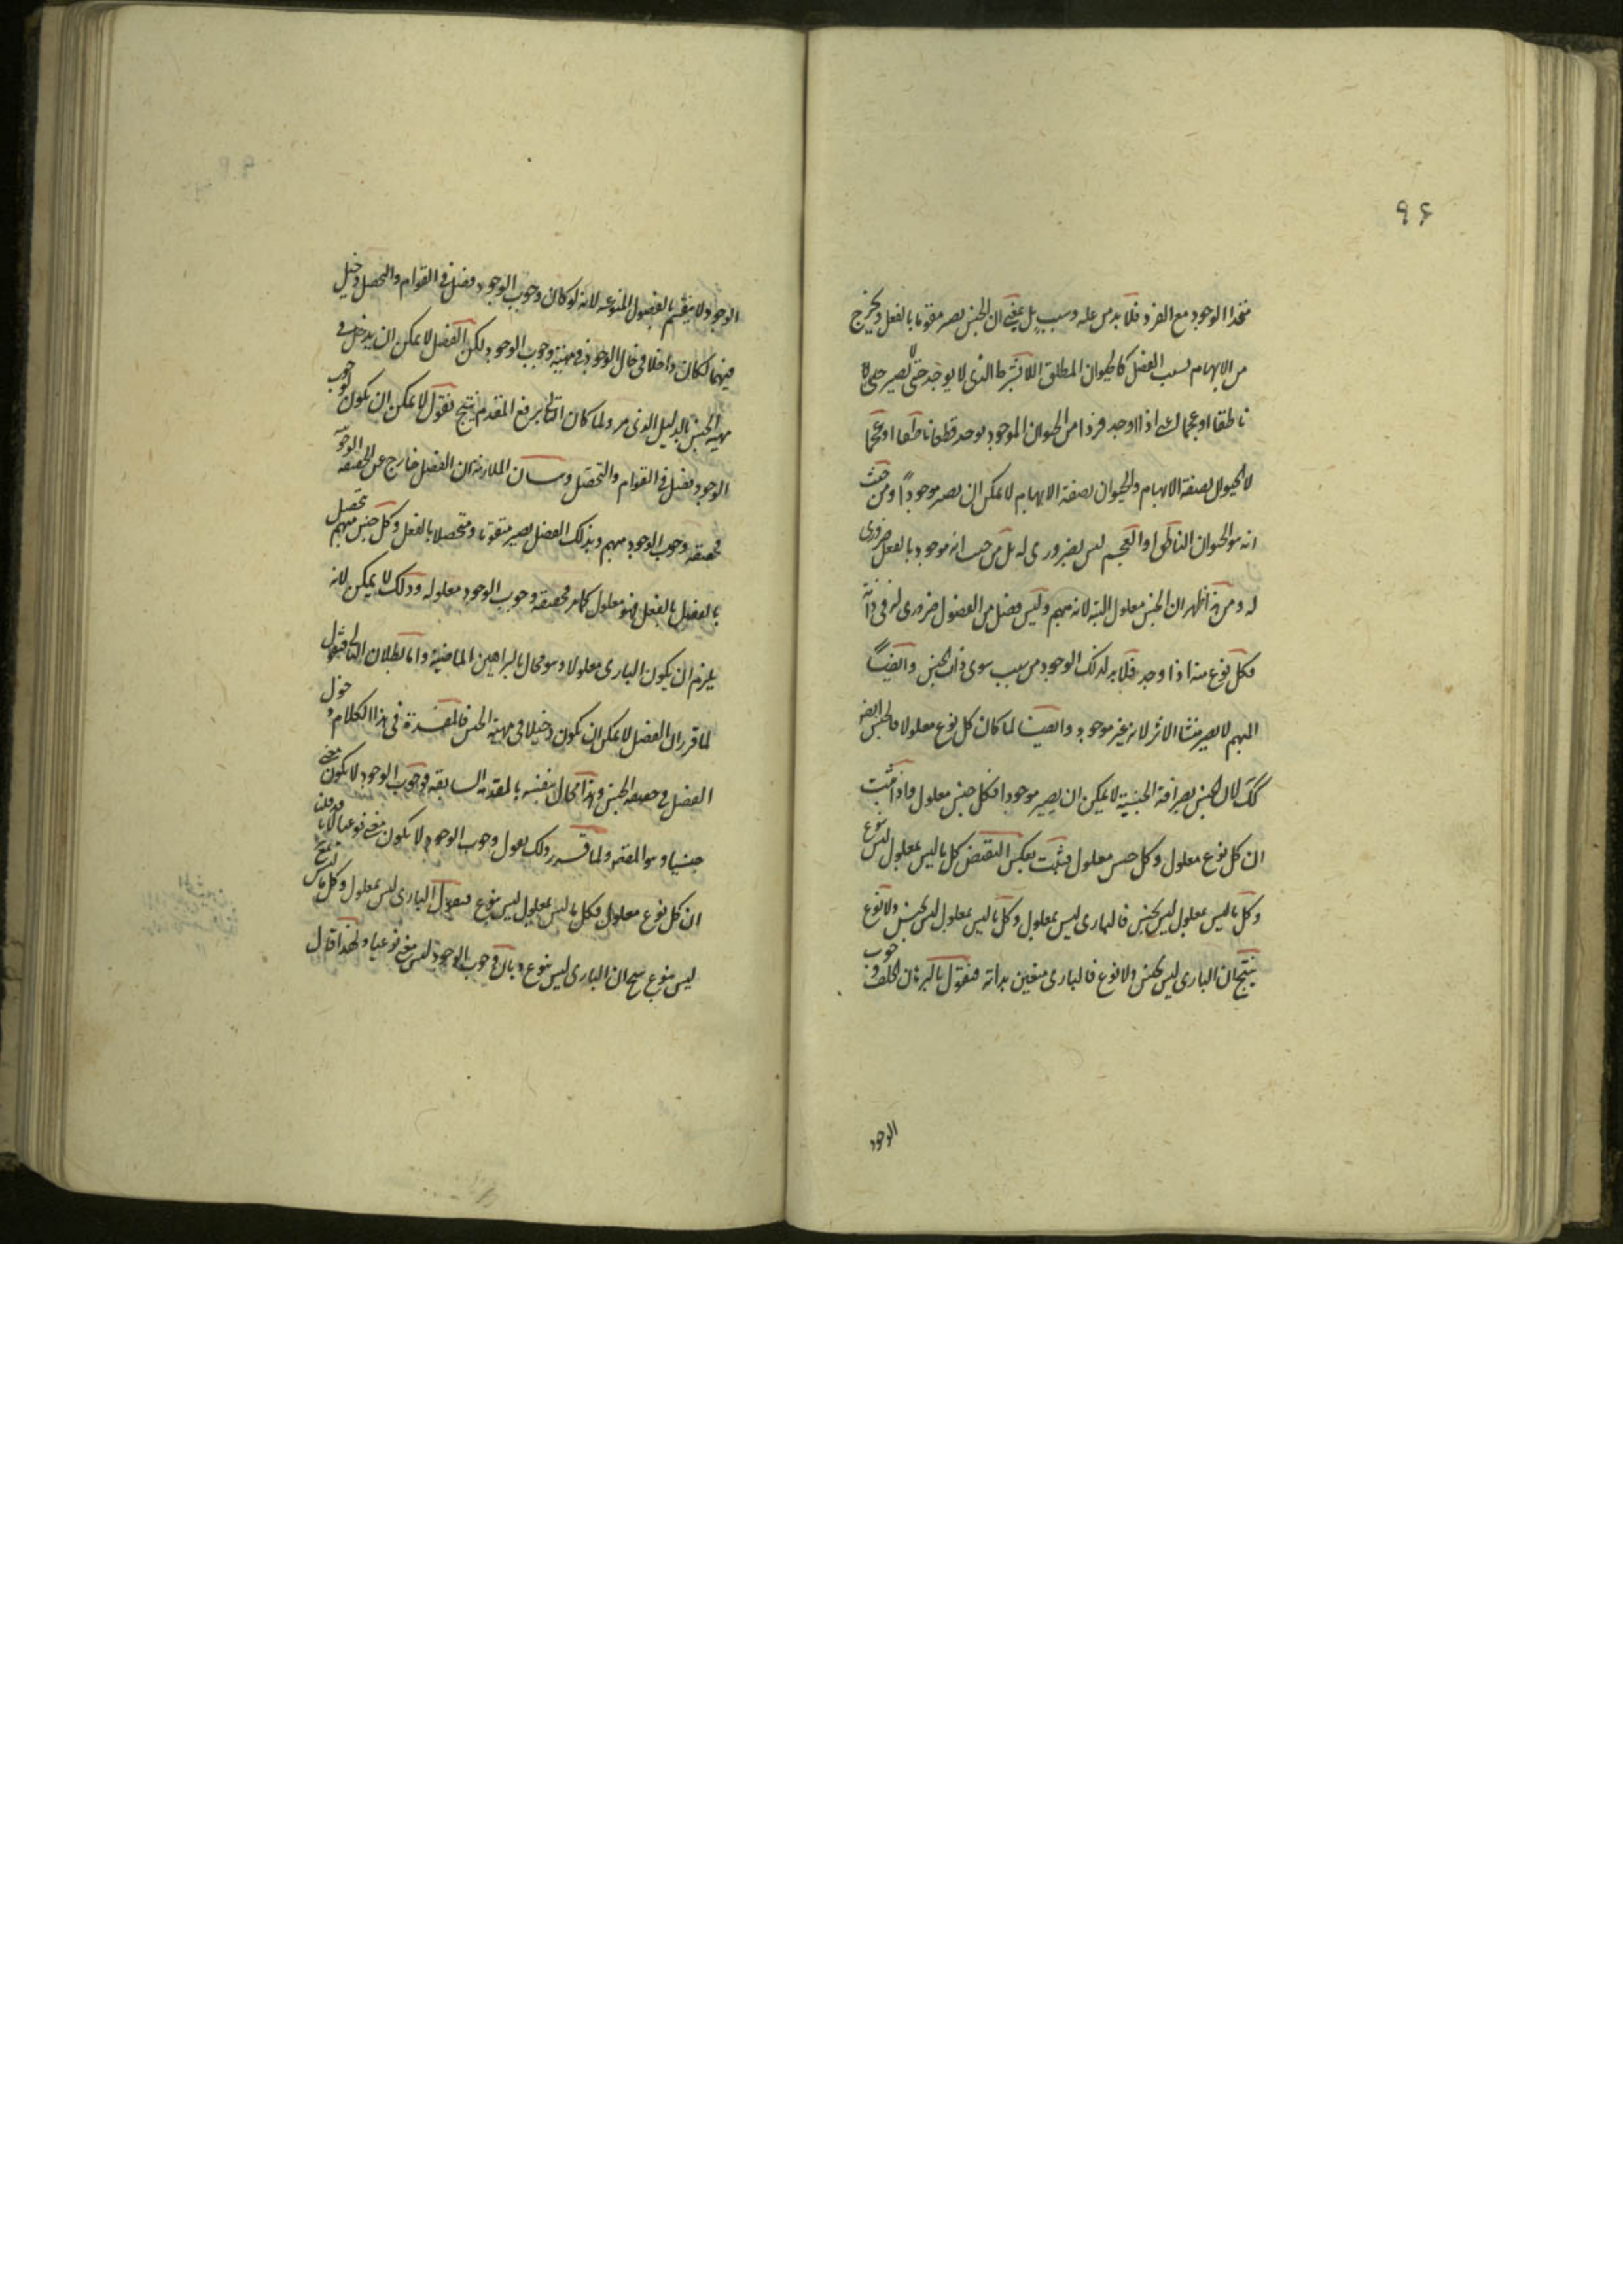 ٩۶
متحدا الوجود مع الفرد فلابد من علة وسبب بل يعني ان الجنس يصير مقوما بالفعل ويخرج
من الابهام بسبب الفصل كالحيوان المطلق اللابشرط الذي لا يوجد حتى لا يصير
ناطقا او عجما اذا اوجد فردا من الحيوان الموجود يوجد قطعا ناطقا او عجما
لا الحيوان بصفة الابهام والحيوان بصفة الابهام لا يمكن ان يصير موجودا ومن حيث
انه هو الحيوان الناطق او العجم ليس بضروري له بل من حيث انه موجود بالفعل ضروري
له ومن هذا ظهر ان الجنس معلول البتة لانه مبهم وليس فصل من الفصول ضروري له في ذاته
فكل نوع منه اذا وجد فلابد لذلك الوجود من سبب سوى ذات الجنس وايضا
المبهم لا يصير منشا الاثر لانه غير موجود وايضا لما كان كل نوع معلولا فالجنس ايضا
كك لان الجنس بصرافة الجنسية لا يمكن ان يصير موجودا فكل جنس معلول فاذا ثبت
ان كل نوع معلول وكل جنس معلول فيثبت بعكس النقيض كل ما ليس بمعلول ليس بنوع
وكل ما ليس بمعلول ليس بجنس فالبارى ليس بمعلول وكل ما ليس بمعلول ليس بجنس ولا نوع
ينتج ان البارى ليس بجنس ولا نوع فالبارى متعين بذاته فنقول بالبرهان الخلف وجوب
الوجود
الوجود لا ينقسم بالفصول المنوعة لانه لو كان وجوب الوجود فصل في القوام والتحصل دخيل
فيهما لكان داخلا في الوجود في مهية وجوب الوجود لكن الفصل لا يمكن ان يدخل في
مهية الجنس بالدليل الذي مر ولما كان التالي يرفع المقدم ينتج فنقول لا يمكن ان يكون لوجوب
الوجود فصل في القوام والتحصل وبيان الملازمة ان الفصل خارج عن الحقيقة
فحقيقة وجوب الوجود مبهم وبذلك الفصل يصير متقوما ومتحصلا بالفعل وكل جنس مبهم تحصل
بالفصل بالفعل فهو معلول كما مر فحقيقة وجوب الوجود معلولة وذلك لا يمكن لانه
يلزم ان يكون البارى معلولا وهو محال بالبراهين الماضية واما بطلان التالي فنقول
لما قرر ان الفصل لا يمكن ان يكون دخيلا في مهية الجنس في هذا الكلام دخول
الفصل في حقيقة الجنس وهذا محال بنفسه بالمقدمة السابقة فوجوب الوجود لا يكون معنى
جنسيا وهو المقصود ولما قرر ذلك نقول وجوب الوجود لا يكون معنى نوعيا لانا قد قلنا
ان كل نوع معلول فكل ما ليس بمعلول ليس بنوع فنقول البارى ليس بمعلول وكل ما ليس بمعلول
ليس بنوع ينتج ان البارى ليس بنوع وبان وجوب الوجود ليس معنى نوعيا ولهذا قال